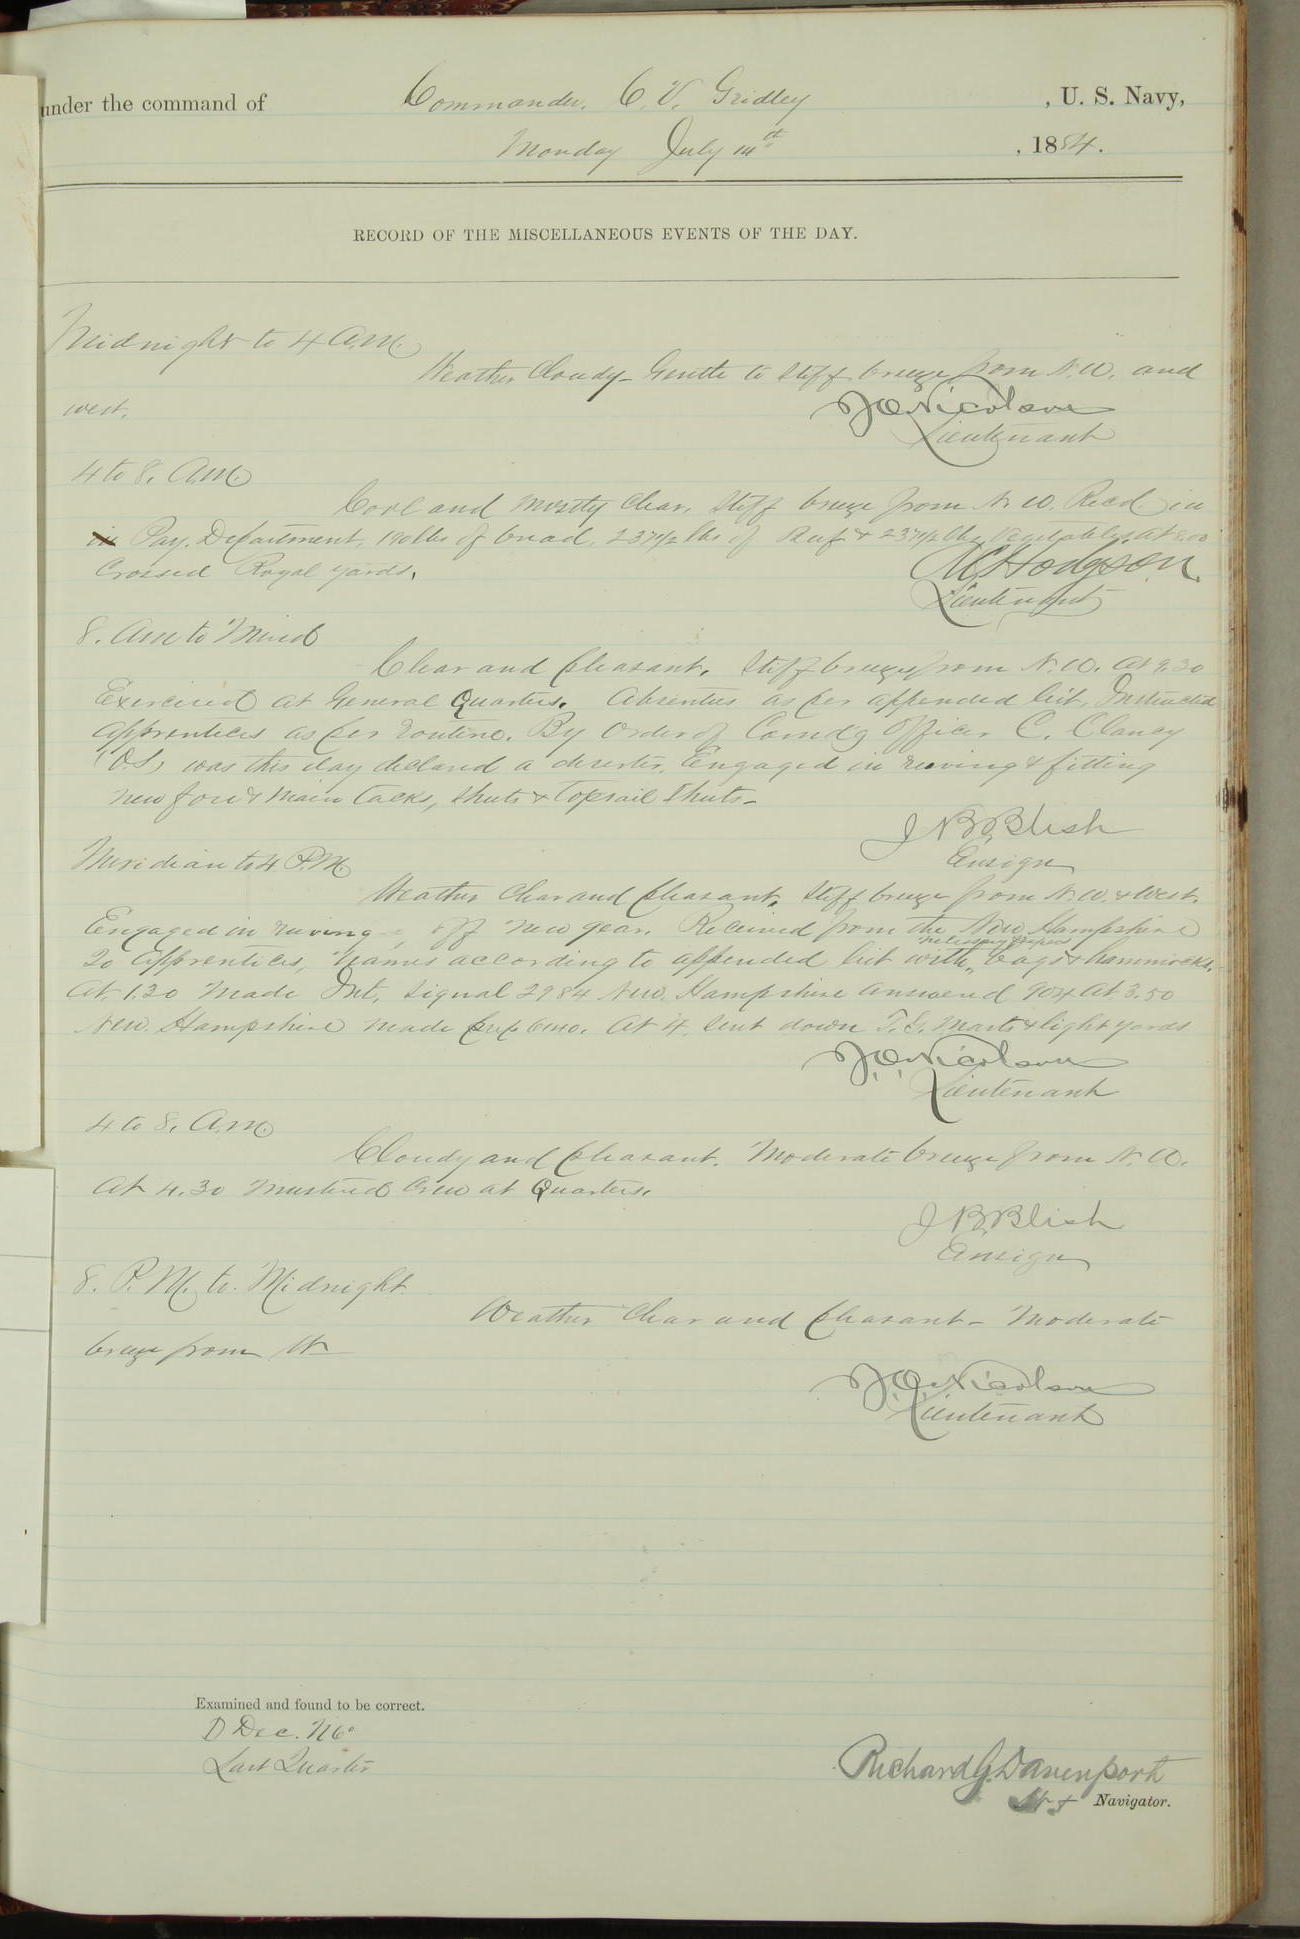 under the command of Commander. C. V. Gridley , U. S. Navy,
Monday July 14th , 1884.
RECORD OF THE MISCELLANEOUS EVENTS OF THE DAY.
Midnight to 4 A.M.
Weather Cloudy - Gentle to stiff breeze from N.W. and
west.
Nicolson
Lieutenant
4 to 8. A.M.
Cool and mostly clear. Stiff breeze from N. W. Recd. in
Pay. Department, 190 lbs of bread, 237 1/2 lbs of Beef & 237 1/2 lbs vegetables. At 8.00
Crossed Royal yards.
Hodgson
Lieutenant
8. Am to Merid
Clear and pleasant. Stiff breeze from N.W. At 9.30
Exercised at General Quarters. Absentees as per appended list. Instructed
apprentices as per routine. By Order of Comdg Officer C. Clancy
(O.S) was this day declared a deserter. Engaged in reeving & fitting
new fore & main tacks, sheets & topsail sheets -
J B Blish
Ensign
Meridian to 4 P.M.
Weather clear and pleasant. Stiff breeze from N. W. & West.
Engaged in reeving off new gear. Received from the New Hampshire
necessary papers
20 Apprentices, names according to appended list with, bags & hammocks.
At 1.30 made Int. signal 2984 New. Hampshire answered 904 At 3.50
New. Hampshire made At 4. sent down T. G. Masts & light yards
Nicolson
Lieutenant
4 to 8. A.m.
Cloudy and pleasant. Moderate breeze from N. W.
At 4.30 mustered crew at Quarters.
J B Blish
Ensign
8. P. M. to. Midnight
Weather Clear and pleasant - Moderate
breeze from W
Nicolson
Lieutenant
Examined and found to be correct.
D Dec. N6°
Last Quarter
Richard G. Davenport
Navigator.